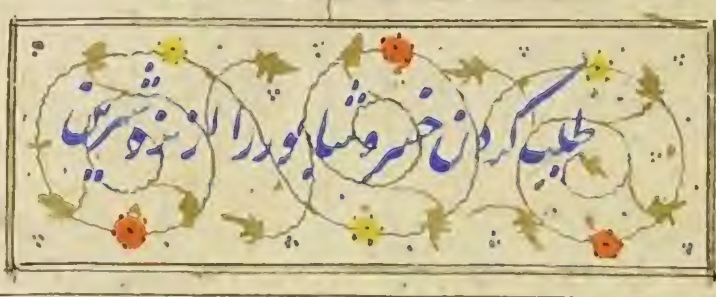 طلب کردن خسرو شاپور را از نزد شیرین